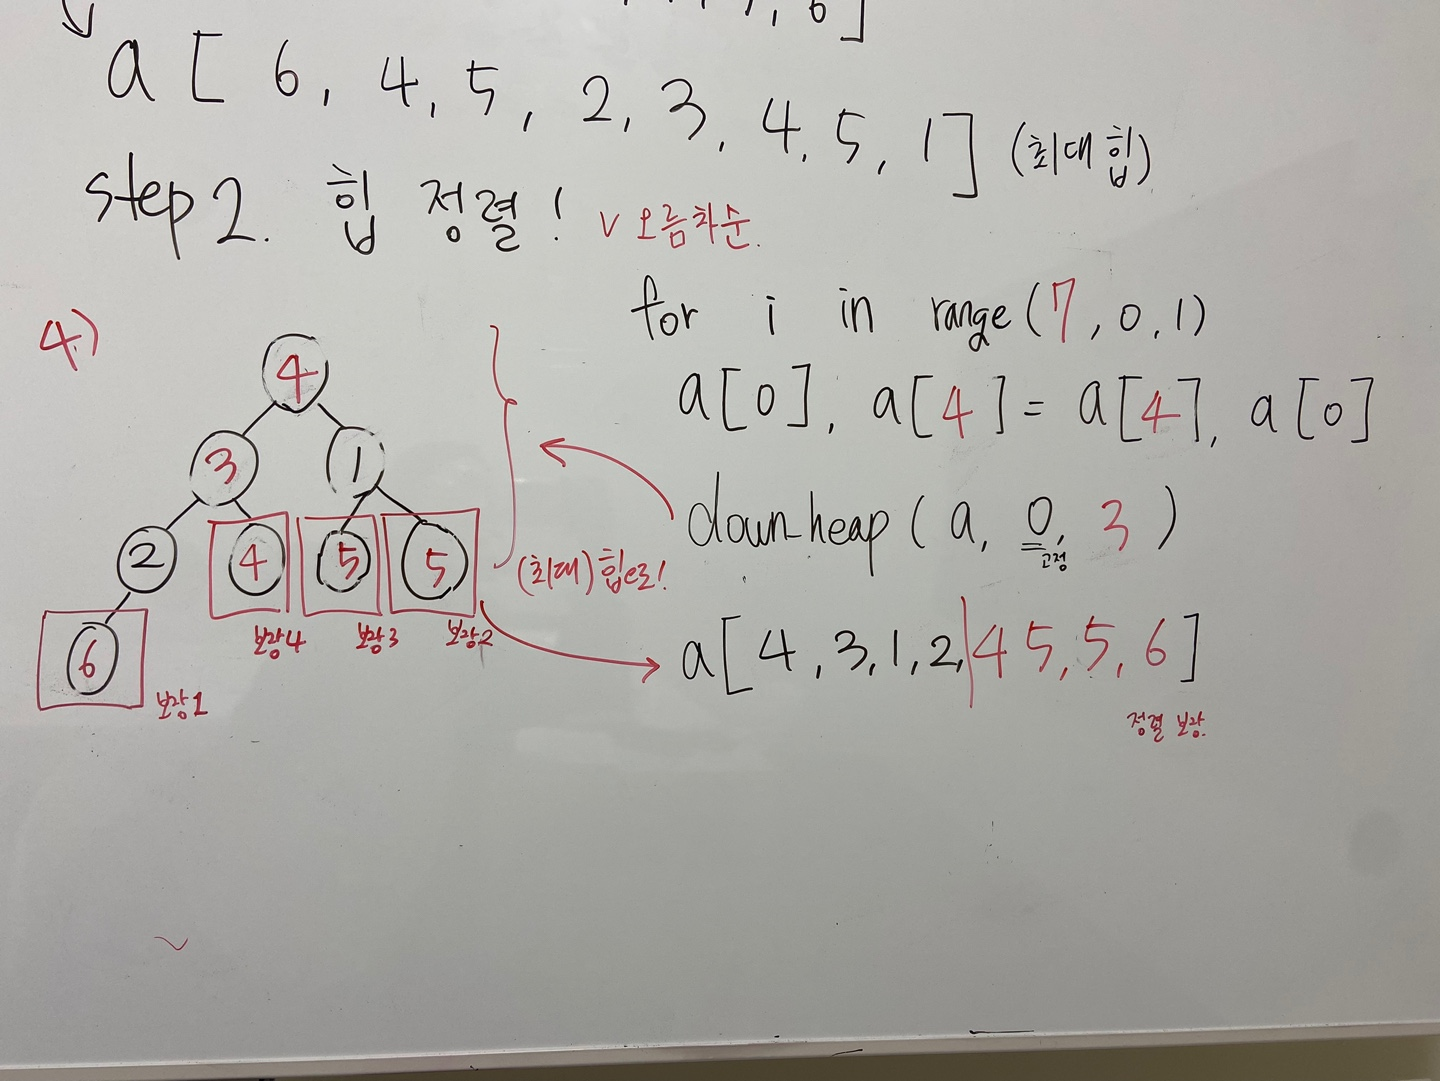 6]
a[6, 4, 5, 2, 3, 4, 5, 1] (최대 힙)
step 2. 힙 정렬! v 오름차순.
for i in range(7, 0, 1)
4)
a[0], a[4] = a[4], a[0]
down-heap(a, 0, 3)
고정
4
3 1
2 4 5 5
(최대) 힙으로!
보장4 보장3 보장2
6
보장1
a[4, 3, 1, 2, | 4 5, 5, 6]
정렬 보장.